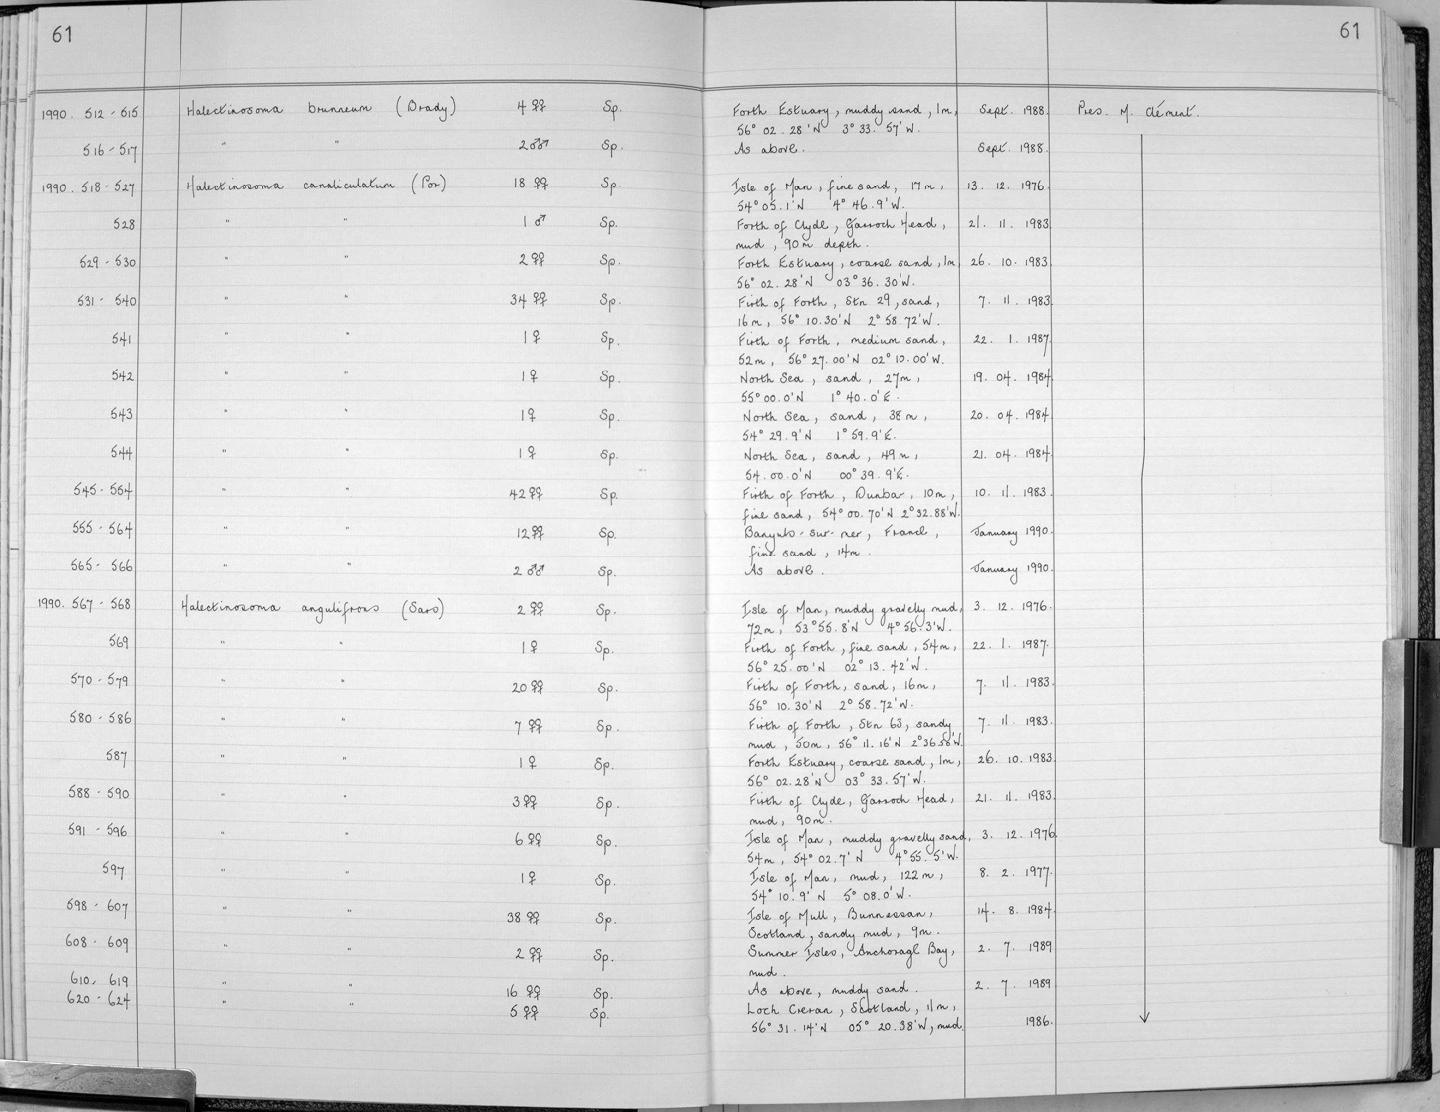 61
61
1990. 512 - 515 Halectinosoma brunneum (Brady) 4 ♀♀ Sp. Forth Estuary, muddy sand, 1m, Sept. 1988. Pres. M. Clément.
56° 02.28'N 3° 33.57'W.
516 - 517 " " 2♂♂ Sp. As above. Sept. 1988.
1990. 518 - 527 Halectinosoma canaliculatum (Por) 18 ♀♀ Sp. Isle of Man, fine sand, 17m, 13. 12. 1976
54° 05.1'N 4° 46.9'W.
528 " " 1 ♂ Sp. Forth of Clyde, Garroch Head, 21. 11. 1983
mud, 90m depth.
529 - 530 " " 2 ♀♀ Sp. Forth Estuary, coarse sand, 1m, 26. 10. 1983
56° 02.28'N 03° 36.30'W.
531 - 540 " " 34 ♀♀ Sp. Firth of Forth, Stn 29, sand, 7. 11. 1983
16m, 56° 10.30'N 2° 58.72'W.
541 " " 1 ♀ Sp. Firth of Forth, medium sand, 22. 1. 1987
52m, 56° 27.00'N 02° 10.00'W.
542 " " 1 ♀ Sp. North Sea, sand, 27m, 19. 04. 1984
55° 00.0'N 1° 40.0'E.
543 " " 1 ♀ Sp. North Sea, sand, 38m, 20. 04. 1984
54° 29.9'N 1° 59.9'E.
544 " " 1 ♀ Sp. North Sea, sand, 49m, 21. 04. 1984
54.00.0'N 00° 39.9'E.
545 - 554 " " 42♀♀ Sp. Firth of Forth, Dunbar, 10m, 10. 11. 1983.
fine sand, 54° 00.70'N 2° 32.88'W.
555 - 564 " " 12♀♀ Sp. Banyuls-sur-mer, France, January 1990.
fine sand, 14m.
565 - 566 " " 2 ♂♂ Sp. As above. January 1990.
1990. 567 - 568 Halectinosoma angulifrons (Sars) 2 ♀♀ Sp. Isle of Man, muddy gravelly mud, 3. 12. 1976.
72m, 53° 55.8'N 4° 56.3'W.
569 " " 1 ♀ Sp. Firth of Forth, fine sand, 54m, 22. 1. 1987.
56° 25.00'N 02° 13.42'W.
570 - 579 " " 20 ♀♀ Sp. Firth of Forth, sand, 16m, 7. 11. 1983.
56° 10.30'N 2° 58.72'W.
580 - 586 " " 7 ♀♀ Sp. Firth of Forth, Stn 63, sandy 7. 11. 1983.
mud, 50m, 56° 11.16'N 2° 36.58'W.
587 " " 1 ♀ Sp. Forth Estuary, coarse sand, 1m, 26. 10. 1983.
56° 02.28'N 03° 33.57'W.
588 - 590 " " 3♀♀ Sp. Firth of Clyde, Garroch Head, 21. 11. 1983.
mud, 90m.
591 - 596 " " 6 ♀♀ Sp. Isle of Man, muddy gravelly sand, 3. 12. 1976
54m, 54° 02.7' N 4° 55.5'W.
597 " " 1♀ Sp. Isle of Man, mud, 122m, 8. 2. 1977.
54° 10.9' N 5° 08.0'W.
598 - 607 " " 38 ♀♀ Sp. Isle of Mull, Bunnessan, 14. 8. 1984.
Scotland, sandy mud, 9m.
608 - 609 " " 2 ♀♀ Sp. Summer Isles, Anchorage Bay, 2. 7. 1989
mud.
610. 619 " " 16 ♀♀ Sp. As above, muddy sand. 2. 7. 1989
620 - 624 " " 5 ♀♀ Sp. Loch Creran, Scotland, 11m,
56° 31.14'N 05° 20.38'W, mud. 1986.